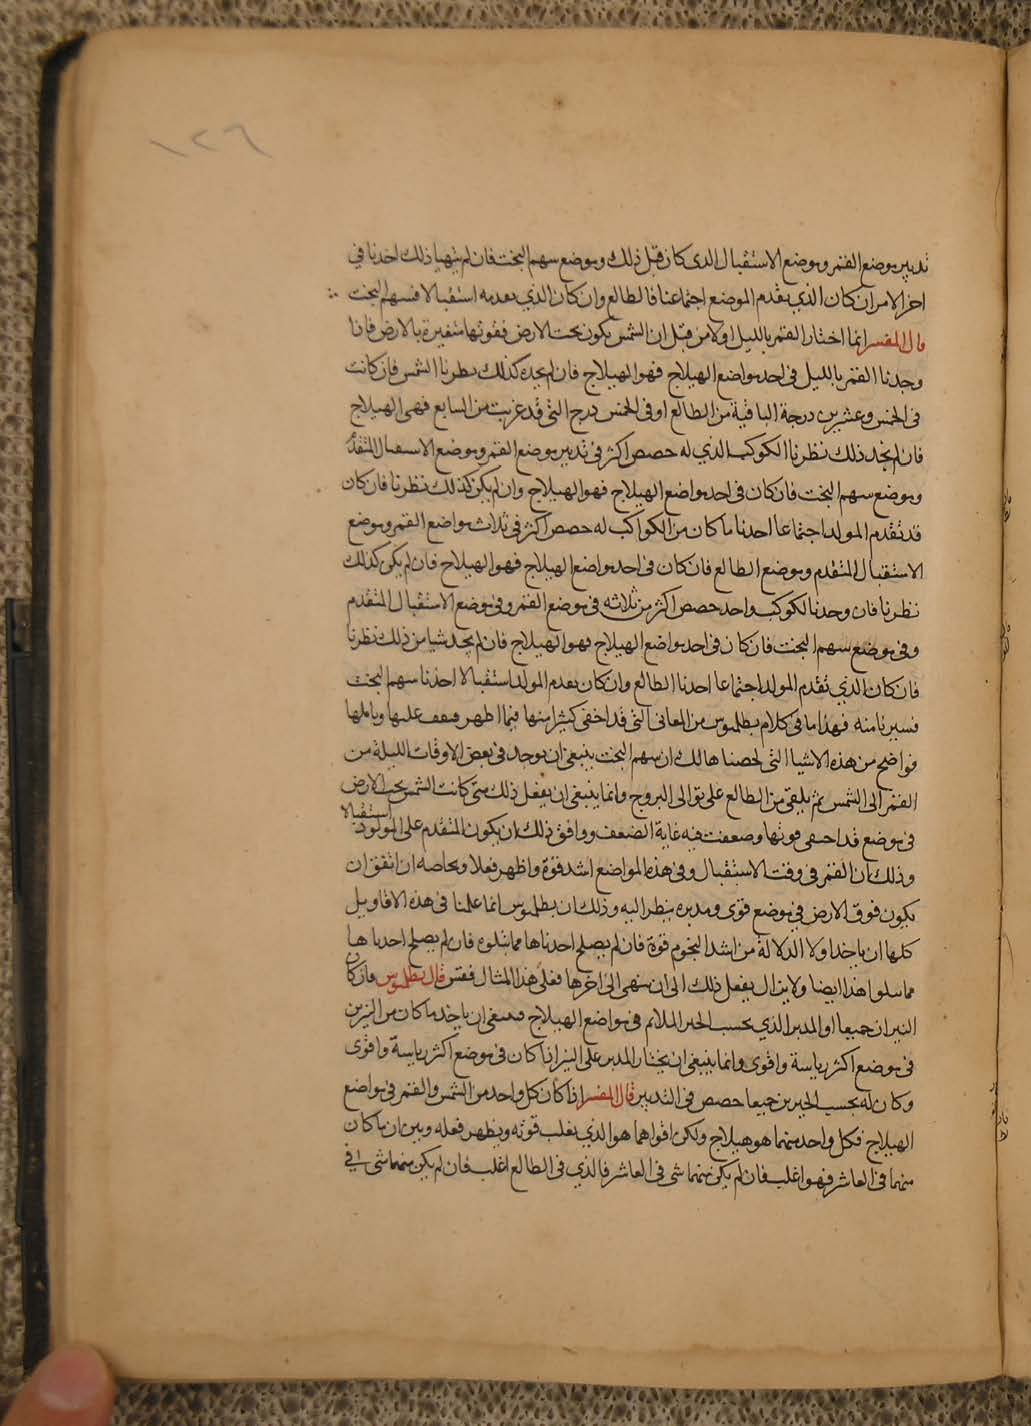 ١٢٦
تدبير موضع القمر وموضع الاستقبال الدى كان قبل ذلك وموضع سهم البخت فان لم يتهيا ذلك اخدنا في
اخر الامر ان كان الذي يقدم الموضع اجتماعا فالطالع وان كان الذي بعدمه استقبالا فسهم البخت
قال المفسر انما اختار القمر بالليل اولا من قبل ان الشمس يكون تحت الارض فقوتها متغيرة بالارض فاذا
وجدنا القمر بالليل فى احد مواضع الهيلاج فهو الهيلاج فان لم يجده كذلك نظرنا الشمس فان كانت
فى الخمس وعشرين درجة الباقية من الطالع او فى الخمس درج التى قد غربت من السابع فهى الهيلاج
فان لم يجد ذلك نظرنا الكوكب الذي له حصص اكثر فى تدبير موضع القمر وموضع الاستقبال المتقدم
وموضع سهم البخت فان كان فى احد مواضع الهيلاج فهو الهيلاج وان لم يكن كذلك نظرنا فان كان
قد تقدم المولد اجتماعا اخدنا ما كان من الكواكب له حصص اكثر فى ثلاث مواضع القمر وموضع
الاستقبال المتقدم وموضع الطالع فان كان فى احد مواضع الهيلاج فهو الهيلاج فان لم يكن كذلك
نظرنا فان وجدنا لكوكب واحد حصص اكثر من ثلاثه فى موضع القمر وفى موضع الاستقبال المتقدم
وفى موضع سهم البخت فان كان فى احد مواضع الهيلاج فهو الهيلاج فان لم يجد شيا من ذلك نظرنا
فان كان الذي تقدم المولد اجتماعا اخدنا الطالع وان كان بعدم المولد استقبالا اخذنا سهم البخت
فسيرنا منه فهذا ما فى كلام بطلميوس من المعانى التى قد اخفى كثيرا منها فيما اظهر فيقف عليها وياملها
فواضح من هذه الاشيا التى لخصناها لك ان سهم البخت ينبغى ان يوجد فى بعض الاوقات الليلة من
القمر الى الشمس ثم يلقى من الطالع على توالى البروج وانما ينبغى ان يفعل ذلك متى كانت الشمس تحت الارض
فى موضع قد اخفى قوتها وضعفت فيه غاية الضعف ووافق ذلك ان يكون المتقدم على المولود استقبالا
وذلك ان القمر فى وقت الاستقبال وفى هذه المواضع اشد قوة واظهر فعلا وبخاصه ان اتفق ان
يكون فوق الارض فى موضع قوى ومدبره ينظر اليه وذلك ان بطلميوس انما علمنا فى هذه الاقاويل
كلها ان ياخد اولا الدلالة من اشد النجوم قوة فان لم يصلح اخدناها مما يتلوه فان لم يصلح اخدناها
مما يتلوا هذا ايضا ولا يزال يفعل ذلك الى ان ينتهى الى اخرها فعلى هذا المثال فقس قال بطلميوس فان كان
النيران جميعا او المدبر الذي بحسب الحيز الملائم فى مواضع الهيلاج فينبغى ان ياخذ ما كان من النيرين
فى موضع اكثر رياسة واقوى وانما ينبغى ان يختار المدبر على النيرين اذا كان فى موضع اكثر رياسة واقوى
وكان له بحسب الحيزين جميعا حصص فى التدبير قال المفسر اذا كان كل واحد من الشمس والقمر فى مواضع
الهيلاج فكل واحد منهما هو هيلاج ولكن اقواهما هو الذي يغلب قوته ويظهر فعله وبين ان ما كان
منهما فى العاشر فهو اغلب فان لم يكن منهما شى فى العاشر فالذي فى الطالع اغلب فان لم يكن منهما شى في